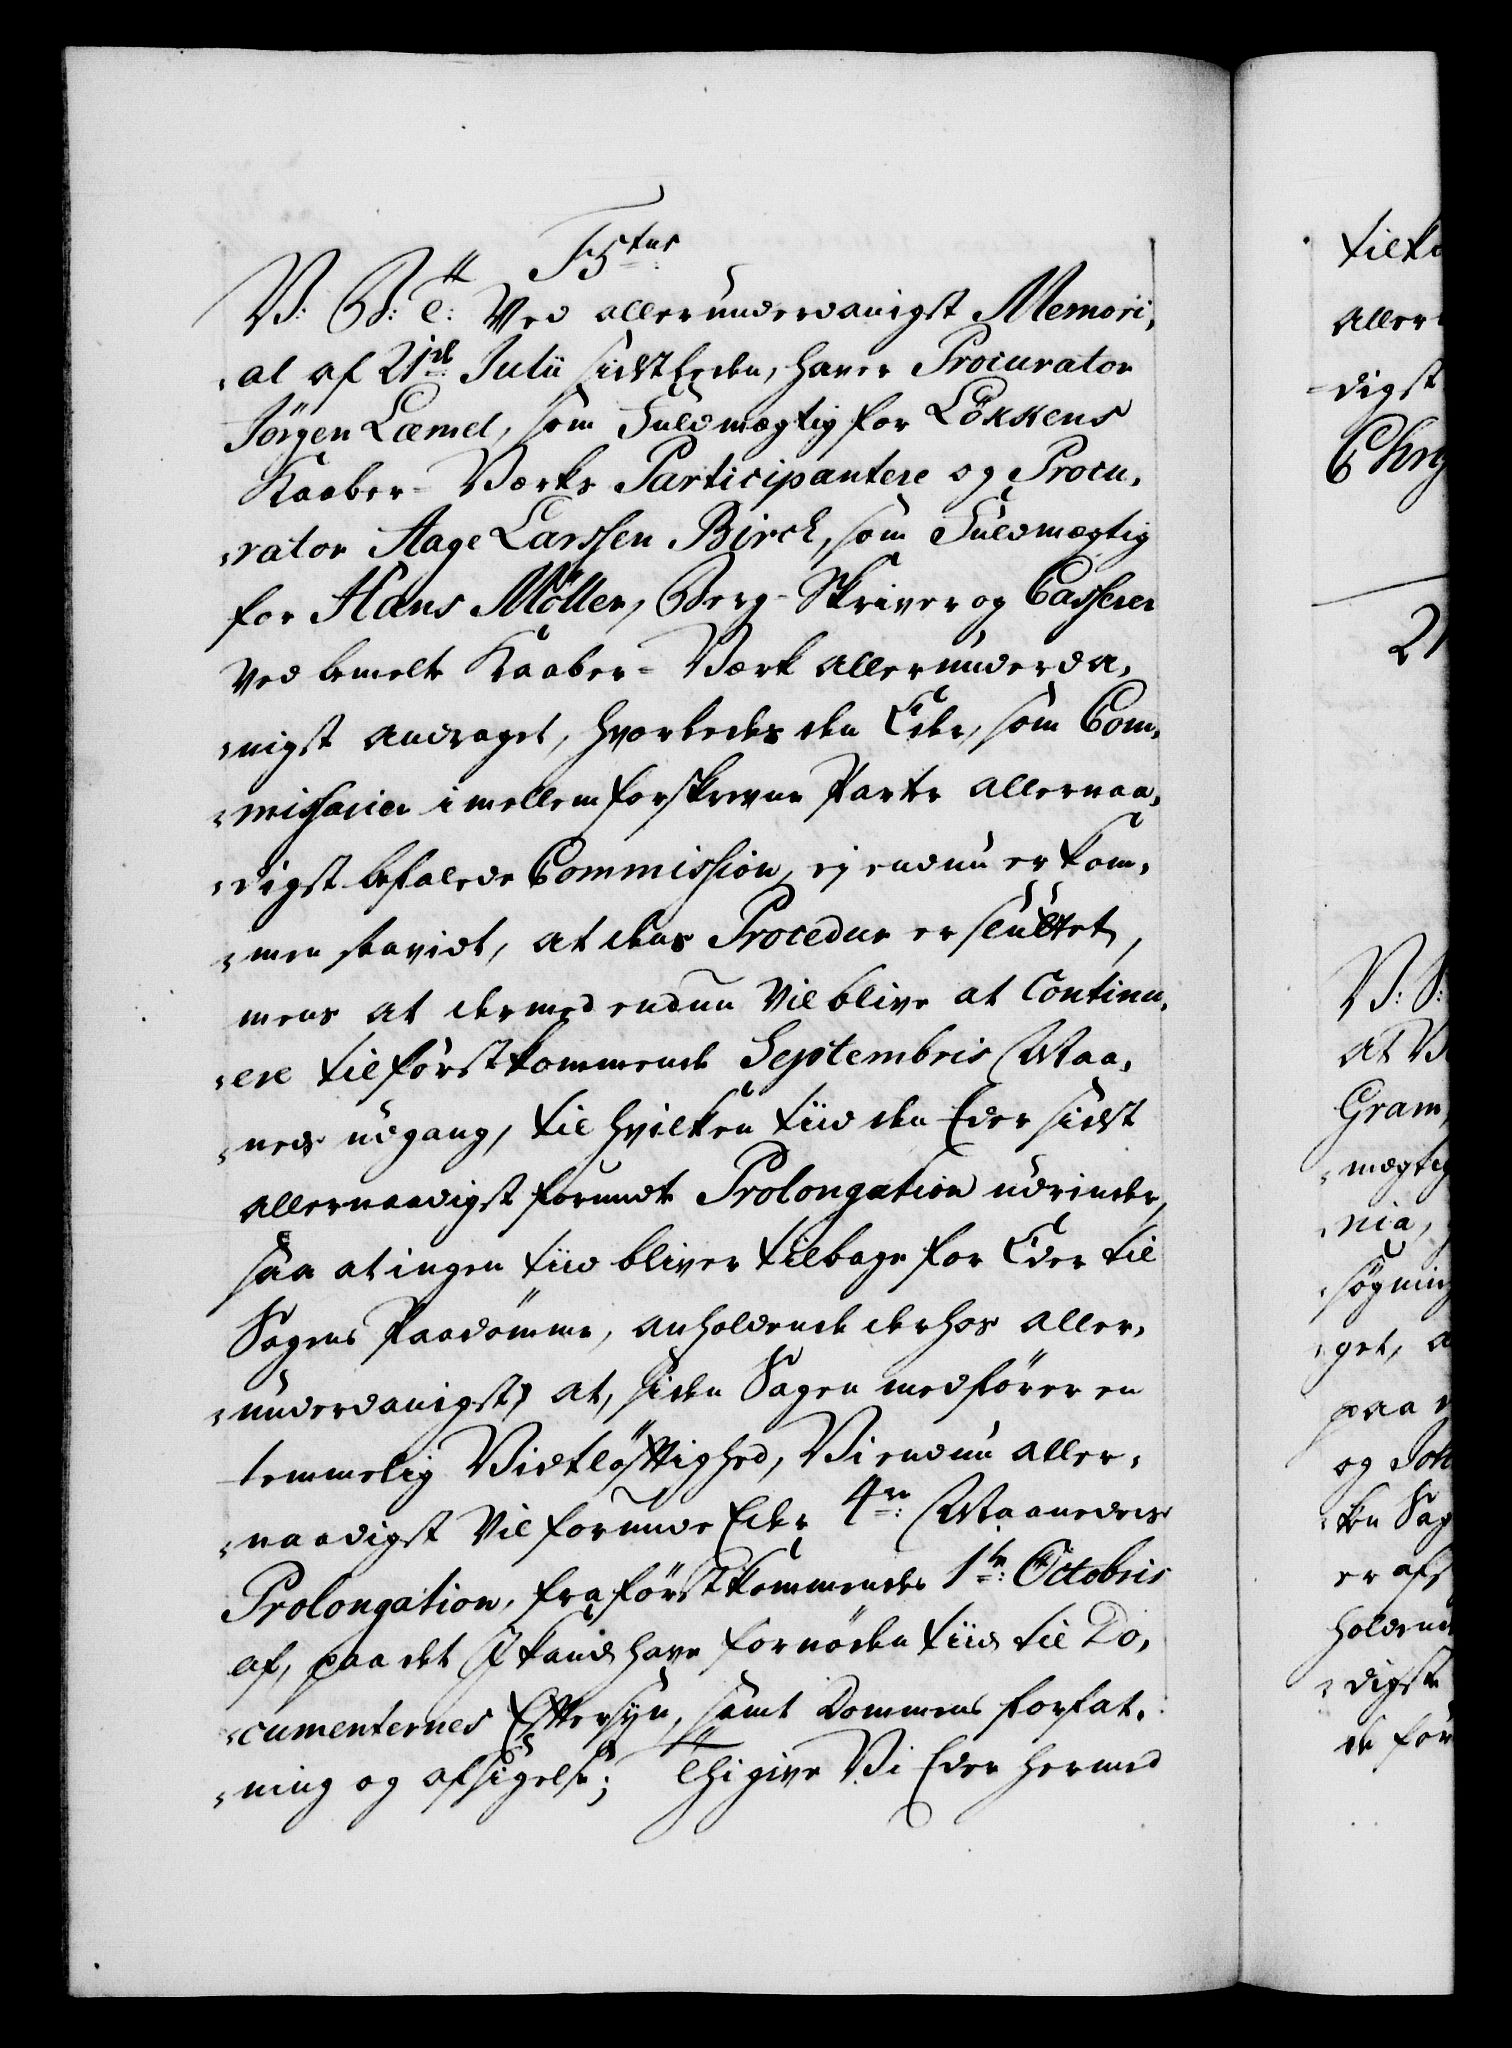 F5tus
V: G: T: Ved allerunderdanigst Memori,
„al af 21de Julii sidstleden, haver Procurator
Jörgen Læmel, som Fuldmægtig for Lökkens
Kaaber-Værks Participantere og Procu,
„rator Aage Larssen Birch, som Fuldmægtig
for Hans Möller, Berg-Skriver og Casserer
ved bemelte Kaaber-Værk allerunderda,
„nigst andraget, hvorledes den Eder, som Com,
„missarier imellem forskrevne Parter allernaa,
„digst befalede Commission, ej endnu er kom,
„men saavidt, at dens Procedur er sluttet,
mens at dermed endnu vil blive at Continu,
„ere til förstkommende Septembris Maa,
„neds udgang, til hvilken tiid den Eder sidst
allernaadigst forundte Prolongation udrinder,
saa at ingen tiid bliver tilbage for Eder til
Sagens Paadömme, anholdende derhos aller,
„underdanigst, at, siden Sagen medförer en
temmelig Vidtlöftighed, Vi endnu aller,
„naadigst vil forunde Eder 4re: Maaneders
Prolongation, fra förstkommende 1te: Octobris
af, paa det I kand have fornöden tiid til Do,
„cumenternes Eftersyn, samt Dommens forfat,
„ning og afsigelse; Thi give Vi Eder hermed
tilk
aller
digst
Chry
21
V: G:
at V
Gram,
„mægtig
„nia,
„sögning
„get, a
paa
og Joh
„ken Sag
er afs
holdend
„digste
de för